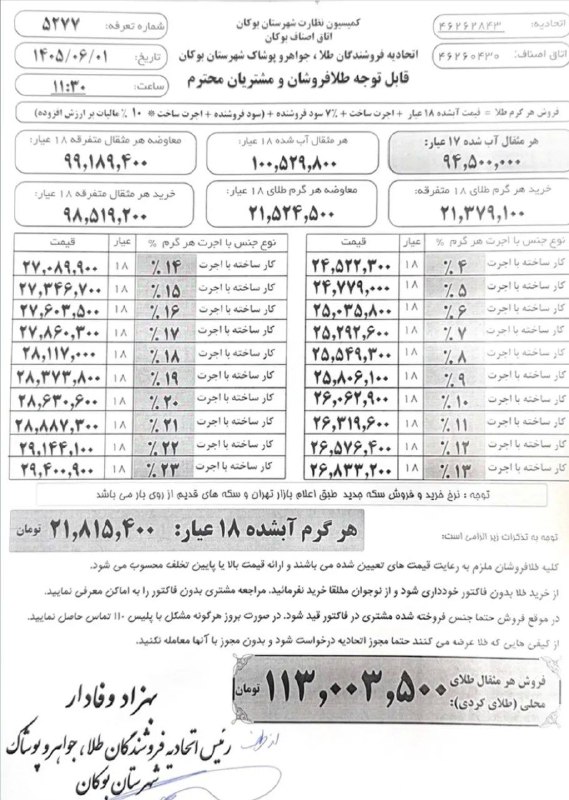 اتحادیه: ۴۶۲۶۲۸۴۳
کمیسیون نظارت شهرستان بوکان
شماره تعرفه: ۵۲۷۷
اتاق اصناف بوکان
اتاق اصناف: ۴۶۲۶۰۴۳۰
اتحادیه فروشندگان طلا، جواهر و پوشاک شهرستان بوکان
تاریخ: ۱۴۰۵/۰۶/۰۱
قابل توجه طلافروشان و مشتریان محترم
ساعت: ۱۱:۳۰
فروش هر گرم طلا = قیمت آبشده ۱۸ عیار + اجرت ساخت + ۷٪ سود فروشنده + (سود فروشنده + اجرت ساخت * ۱۰ ٪ مالیات بر ارزش افزوده)
هر مثقال آب شده ۱۷ عیار: ۹۴,۵۰۰,۰۰۰
هر مثقال آب شده ۱۸ عیار: ۱۰۰,۵۲۹,۸۰۰
معاوضه هر مثقال متفرقه ۱۸ عیار: ۹۹,۱۸۹,۴۰۰
خرید هر گرم طلای ۱۸ متفرقه: ۲۱,۳۷۹,۱۰۰
معاوضه هر گرم طلای ۱۸ عیار: ۲۱,۵۲۴,۵۰۰
خرید هر مثقال متفرقه ۱۸ عیار: ۹۸,۵۱۹,۲۰۰
نوع جنس با اجرت هر گرم % عیار قیمت
کار ساخته با اجرت ٪۴ ۱۸ ۲۴,۵۲۲,۳۰۰
کار ساخته با اجرت ٪۵ ۱۸ ۲۴,۷۷۹,۰۰۰
کار ساخته با اجرت ٪۶ ۱۸ ۲۵,۰۳۵,۸۰۰
کار ساخته با اجرت ٪۷ ۱۸ ۲۵,۲۹۲,۶۰۰
کار ساخته با اجرت ٪۸ ۱۸ ۲۵,۵۴۹,۳۰۰
کار ساخته با اجرت ٪۹ ۱۸ ۲۵,۸۰۶,۱۰۰
کار ساخته با اجرت ٪۱۰ ۱۸ ۲۶,۰۶۲,۹۰۰
کار ساخته با اجرت ٪۱۱ ۱۸ ۲۶,۳۱۹,۶۰۰
کار ساخته با اجرت ٪۱۲ ۱۸ ۲۶,۵۷۶,۴۰۰
کار ساخته با اجرت ٪۱۳ ۱۸ ۲۶,۸۳۳,۲۰۰
نوع جنس با اجرت هر گرم % عیار قیمت
کار ساخته با اجرت ٪۱۴ ۱۸ ۲۷,۰۸۹,۹۰۰
کار ساخته با اجرت ٪۱۵ ۱۸ ۲۷,۳۴۶,۷۰۰
کار ساخته با اجرت ٪۱۶ ۱۸ ۲۷,۶۰۳,۵۰۰
کار ساخته با اجرت ٪۱۷ ۱۸ ۲۷,۸۶۰,۳۰۰
کار ساخته با اجرت ٪۱۸ ۱۸ ۲۸,۱۱۷,۰۰۰
کار ساخته با اجرت ٪۱۹ ۱۸ ۲۸,۳۷۳,۸۰۰
کار ساخته با اجرت ٪۲۰ ۱۸ ۲۸,۶۳۰,۶۰۰
کار ساخته با اجرت ٪۲۱ ۱۸ ۲۸,۸۸۷,۳۰۰
کار ساخته با اجرت ٪۲۲ ۱۸ ۲۹,۱۴۴,۱۰۰
کار ساخته با اجرت ٪۲۳ ۱۸ ۲۹,۴۰۰,۹۰۰
توجه : نرخ خرید و فروش سکه جدید طبق اعلام بازار تهران و سکه های قدیم از روی بار می باشد
توجه به تذکرات زیر الزامی است:
هر گرم آبشده ۱۸ عیار: ۲۱,۸۱۵,۴۰۰ تومان
کلیه طلافروشان ملزم به رعایت قیمت های تعیین شده می باشند و ارائه قیمت بالا یا پایین تخلف محسوب می شود.
از خرید طلا بدون فاکتور خودداری شود و از نوجوان مطلقا خرید نفرمائید. مراجعه مشتری بدون فاکتور را به اماکن معرفی نمایید.
در موقع فروش حتما جنس فروخته شده مشتری در فاکتور قید شود. در صورت بروز هرگونه مشکل با پلیس ۱۱۰ تماس حاصل نمایید.
از کیفی هایی که طلا عرضه می کنند حتما مجوز اتحادیه درخواست شود و بدون مجوز با آنها معامله نکنید.
فروش هر مثقال طلای محلی (طلای کردی): ۱۱۳,۰۰۳,۵۰۰ تومان
بهزاد وفادار
رئیس اتحادیه فروشندگان طلا، جواهر و پوشاک
شهرستان بوکان